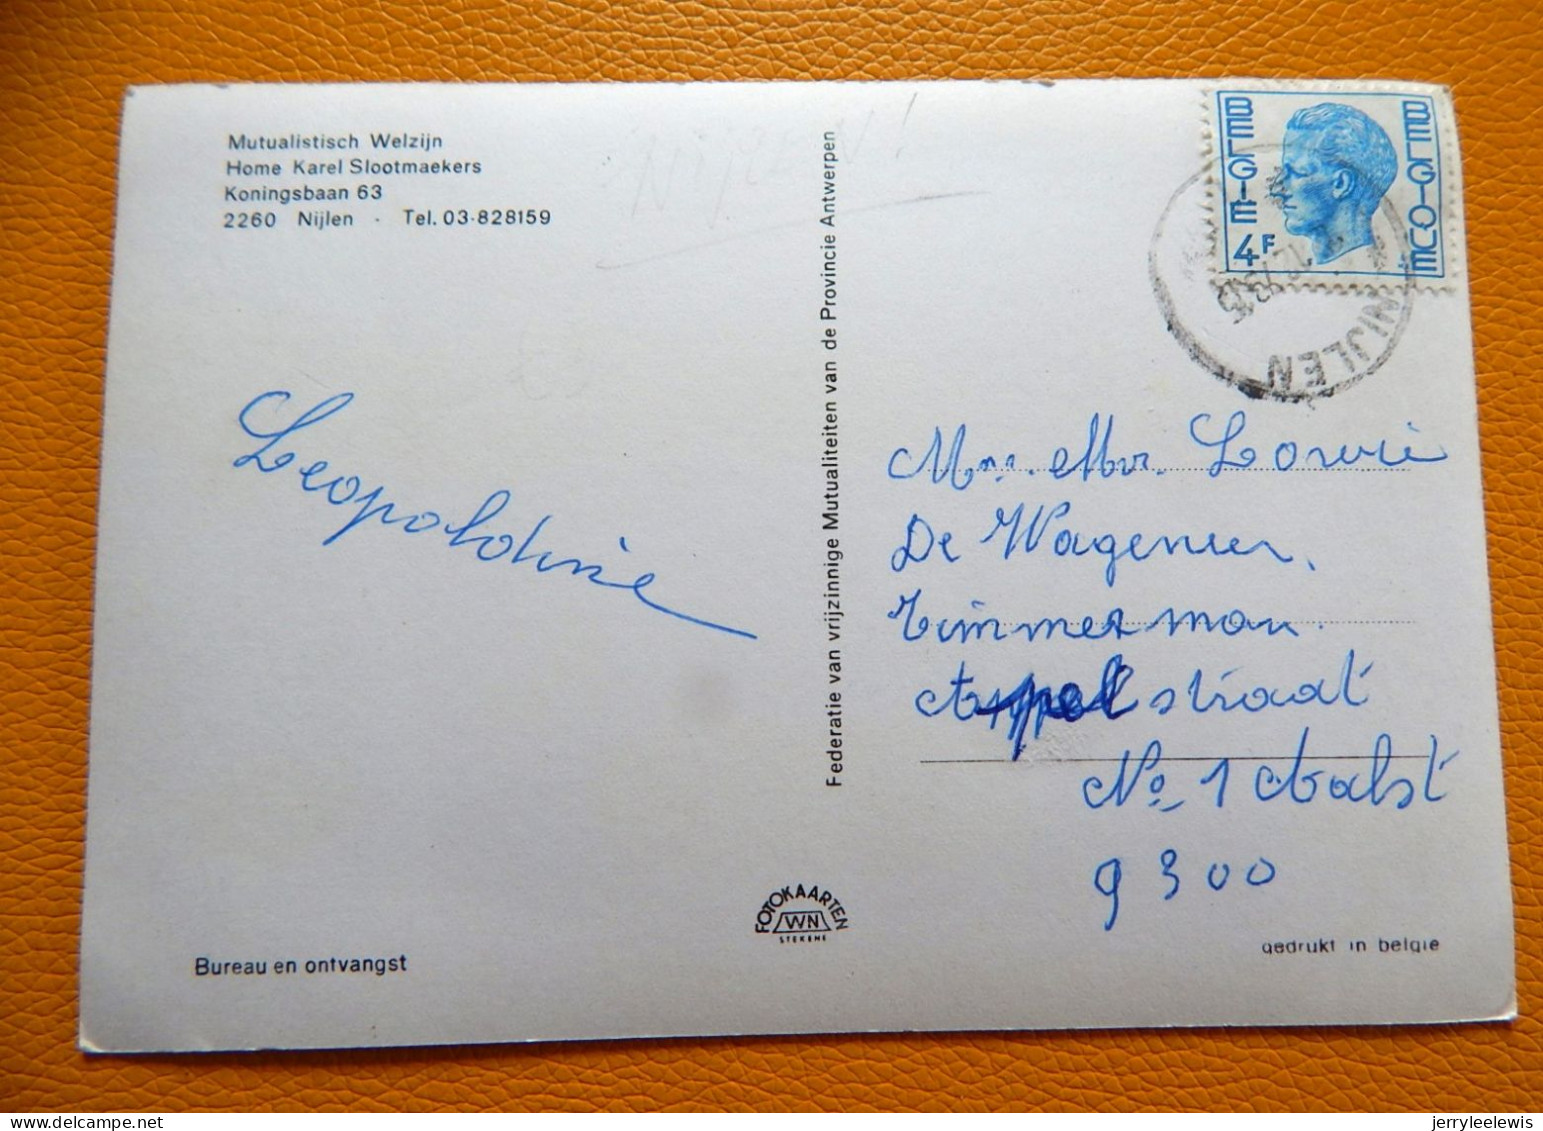 Mutualistisch Welzijn
Home Karel Slootmaekers
Koningsbaan 63
2260 Nijlen - Tel. 03-828159
NijLEN!
Leopoldine
Bureau en ontvangst
Federatie van vrijzinnige Mutualiteiten van de Provincie Antwerpen
FOTOKAARTEN
WN
STEKENE
BELGIE
BELGIQUE
4F
NIJLEN
Mr. Lowie
De Wageneer.
Timmerman.
Appelstraat
No 1 Aalst
9300
gedrukt in belgie
jerryleelewis - delcampe.net